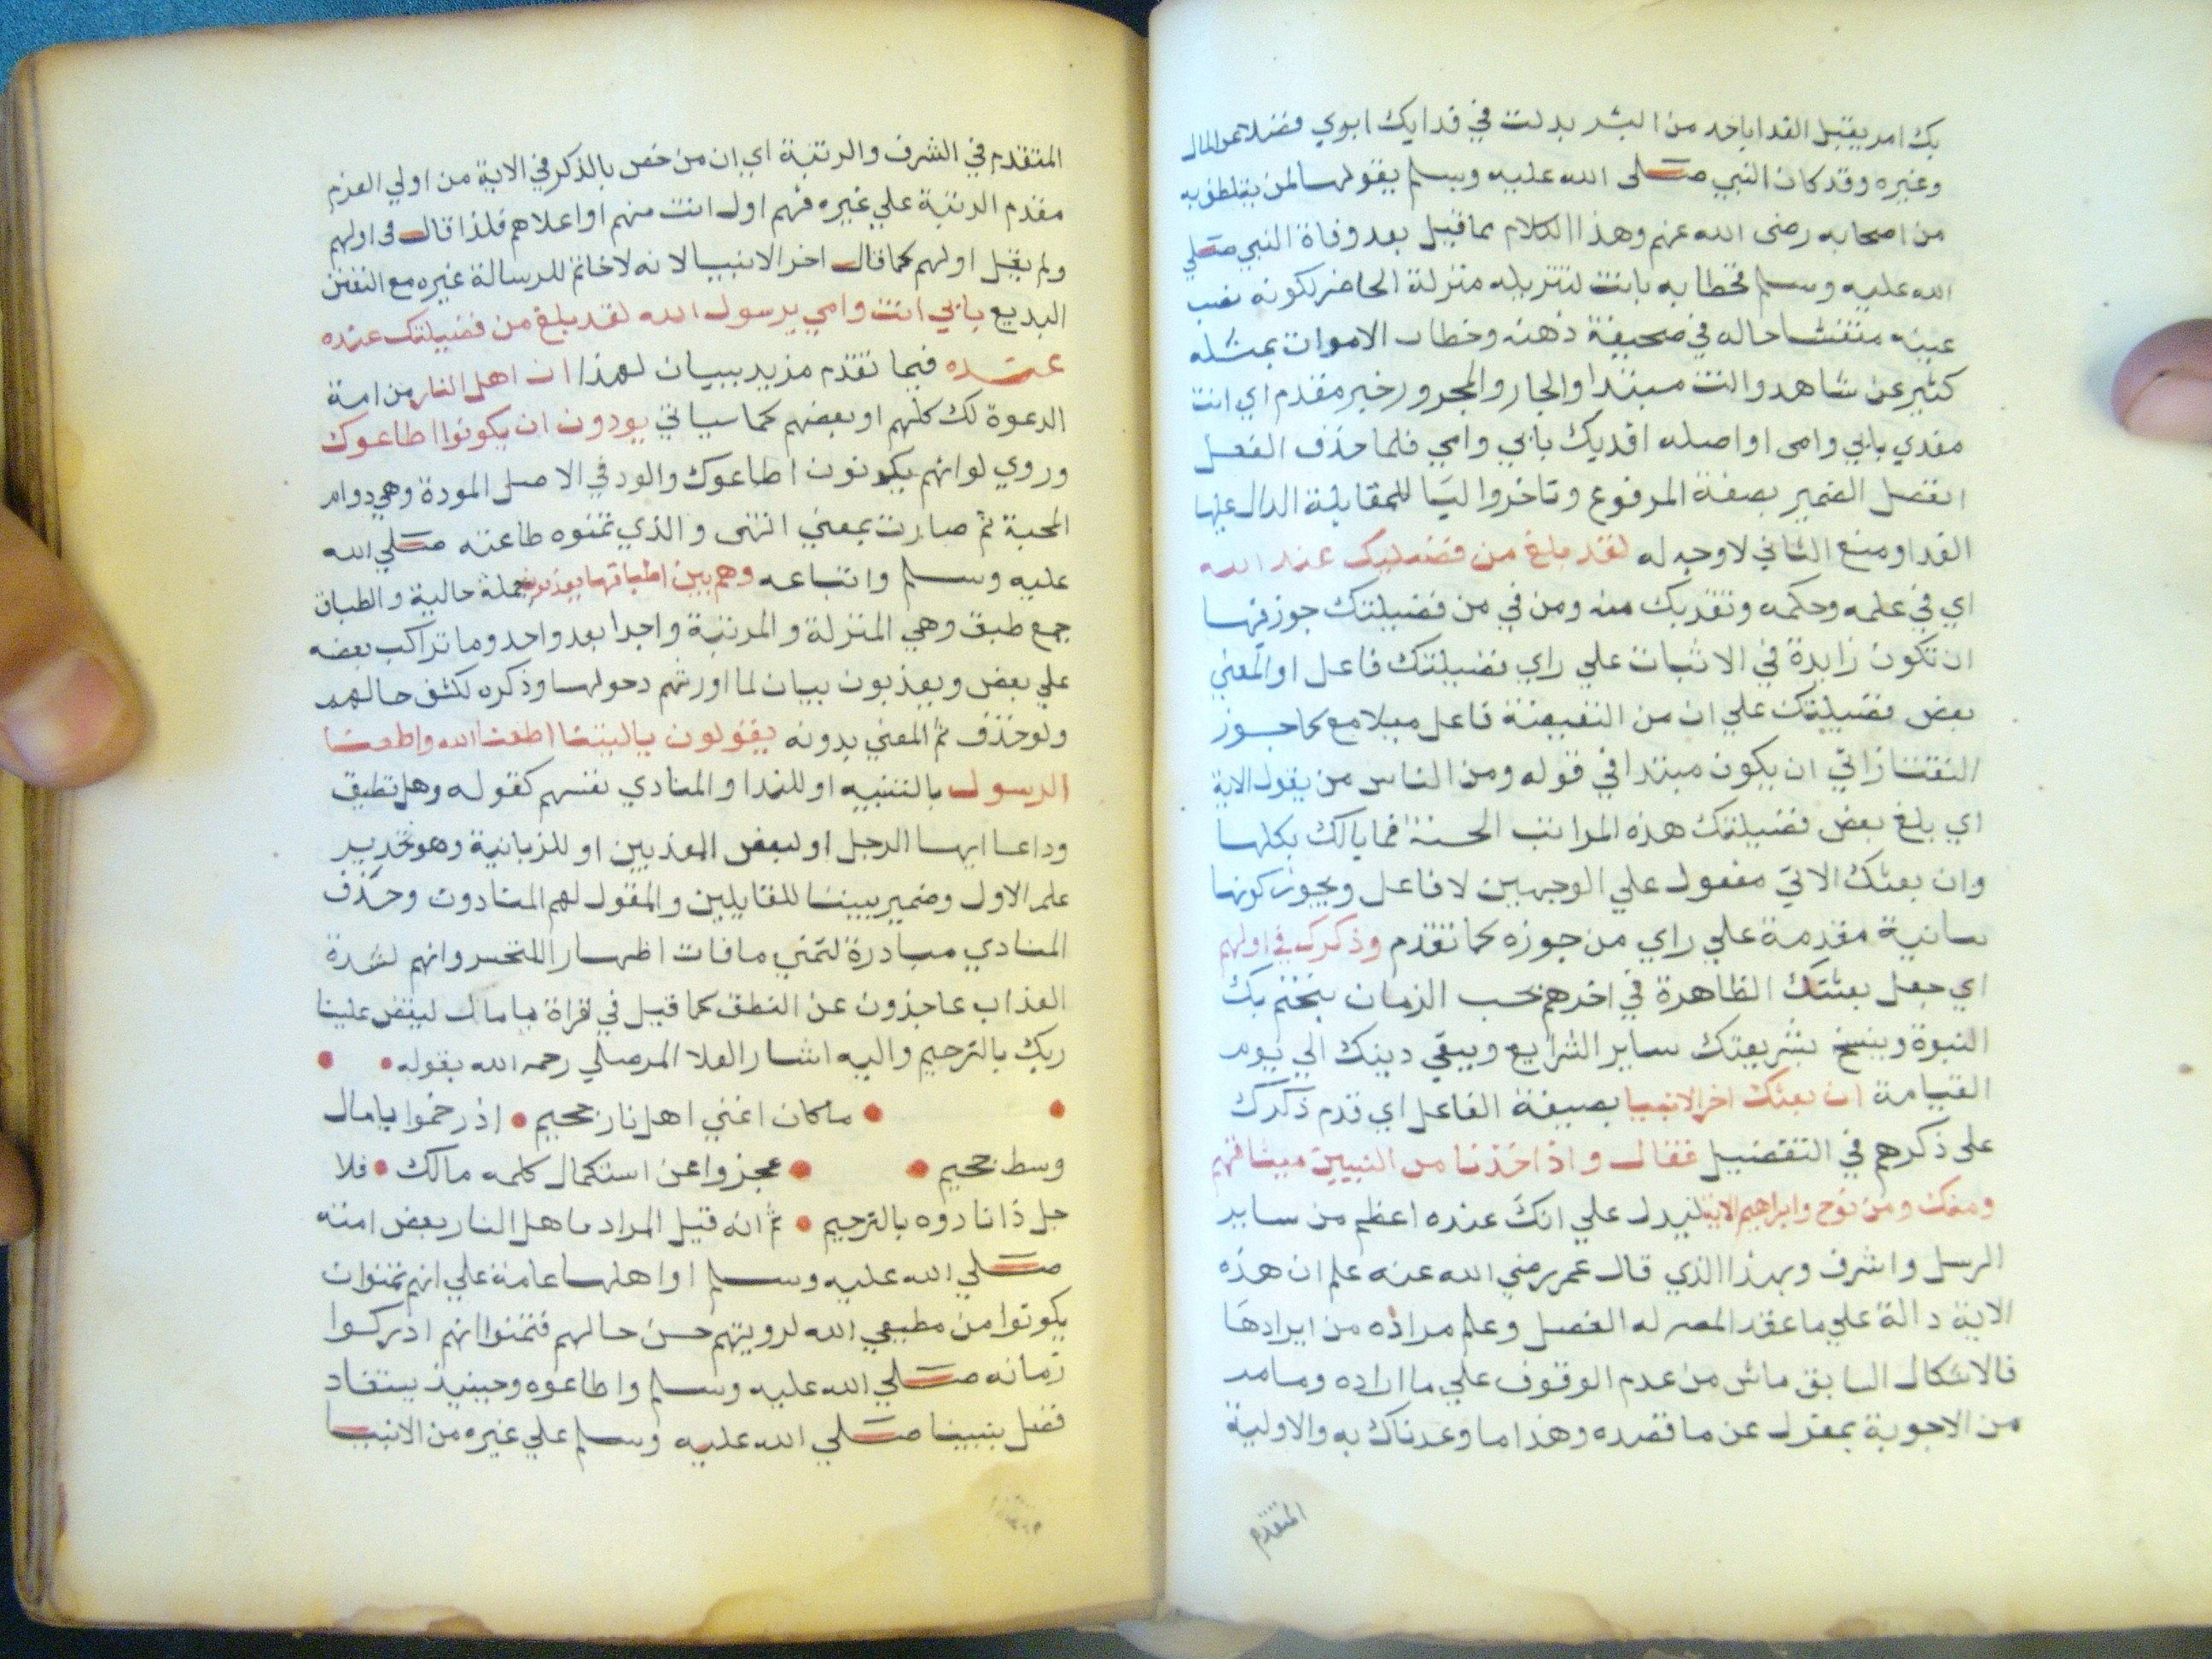 بك امر يقبل الفدا باحد من البشر بدلت في فدايك ابوي فضلا عن المال
وغيره وقد كان النبي صلى الله عليه وسلم يقولها لمن يتلطف به
من اصحابه رضى الله عنهم وهذا الكلام مما قيل بعد وفاة النبي صلي
الله عليه وسلم فخطابه بانت لتنزيله منزلة الحاضر لكونه نصب
عينه منتقشا حاله في صحيفة ذهنه وخطاب الاموات بمثله
كثير عن شاهد وانت مبتدا والجار والمجرور خبر مقدم اي انت
مفدي بابي وامى او اصله افديك بابي وامي فلما حذف الفعل
انفصل الضمير بصفة المرفوع وتاخر والبا للمقابلة الدال عليها
الفدا ومنع الثاني لا وجه له لقد بلغ من فضيلتك عند الله
اي في علمه وحكمه وتقديك منه ومن في من فضيلتك جوز فيها
ان تكون زايدة في الاثبات علي راي فضيلتك فاعل او المعني
بعض فضيلتك علي ان من التبعيضة فاعل ميلا مع كما جوز
التفتازاني ان يكون مبتدا في قوله ومن الناس من يقول الاية
اي بلغ بعض فضيلتك هذه المراتب الحسنة فما بالك بكلها
وان بعثك الاتي مفعول علي الوجهين لا فاعل ويجوز كونها
بيانية مقدمة علي راي من جوزه كما تقدم وذكرك في اولهم
اي جعل بعثتك الظاهرة في اخرهم بحسب الزمان بختم بك
النبوة وينسخ بشريعتك ساير الشرايع ويبقي دينك الي يوم
القيامة ان بعثك اخر الانبيا بصيغة الفاعل اي قدم ذكرك
على ذكرهم في التفضيل فقال واذ اخذنا من النبيين ميثاقهم
ومنك ومن نوح وابراهيم الاية ليدل علي انك عنده اعظم من ساير
الرسل واشرف وبهذا الذي قال عمر رضي الله عنه علم ان هذه
الاية دالة علي ما عقد المصر له الفصل وعلم مراده من ايرادها
فالاشكال السابق ماش من عدم الوقوف علي ما اراده وما مر
من الاجوبة بمعزل عن ما قصده وهذا ما وعدناك به والاولية
المتقدم
المتقدم في الشرف والرتبة اي ان من خص بالذكر في الاية من اولي العزم
مقدم الرتبة علي غيره فهم اول انت منهم او اعلاهم فلذا قال في اولهم
ولم يقل اولهم كما قال اخر الانبيا لانه لا خاتم للرسالة غيره مع التفنن
البديع بابي انت وامي يرسول الله لقد بلغ من فضيلتك عنده
عنده فيما تقدم مزيد ببيان لهذا ان اهل النار من امة
الدعوة لك كلهم او بعضهم كما سياتي يودون ان يكونوا اطاعوك
وروي لوانهم يكونون اطاعوك والود في الاصل المودة وهي دوام
المحبة ثم صارت بمعني انتهى والذي تمنوه طاعته صلي الله
عليه وسلم واتباعه وهم بين اطباقها يعذبون جملة حالية والطباق
جمع طبق وهي المنزلة والمرتبة واحدا بعد واحد وما تراكب بعضه
علي بعض ويعذبون بيان لما اورثهم دخولها وذكره لكشف حالهم
ولو حذف تم المعني بدونه يقولون ياليتنا اطعنا الله واطعنا
الرسول بالتنبيه او للندا والمنادي نفسهم كقوله وهل تطيق
وداعا ايها الرجل او لبعض المعذبين او للزبانية وهو تحرير
علم الاول وضمير بيننا للقايلين والمقول لهم المنادون وحذف
المنادي مبادرة لتمني ما فات اظهار اللتحسر وانهم لشدة
العذاب عاجزون عن النطق كما قيل في قراة يامال ليقض علينا
ربك بالترخيم واليه اشار العلا المرصلي رحمه الله بقوله
ما كان اغني اهل نار جحيم اذ رخموا يامال
وسط جحيم عجزوا عن استكمال كلمه مالك فلا
جل ذا نادوه بالترخيم ثم انه قيل المراد باهل النار بعض امته
صلي الله عليه وسلم او اهلها عامة علي انهم تمنوا ان
يكونوا من مطيعي الله لرويتهم حسن حالهم فتمنوا انهم ادركوا
زمانه صلي الله عليه وسلم واطاعوه وحينيذ يستفاد
فضل نبينا صلي الله عليه وسلم علي غيره من الانبيا